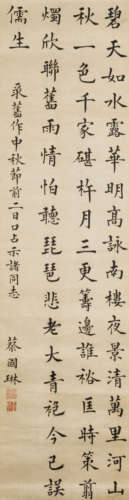 碧天如水露華明高詠南樓夜景清萬里河山
秋一色千家碪杵月三更籌邊誰裕匡時策翦
燭欣聯舊雨情怕聽琵琶悲老大青袍今已誤
儒生
舊作中秋節前二日口占示諸同志
蔡國琳